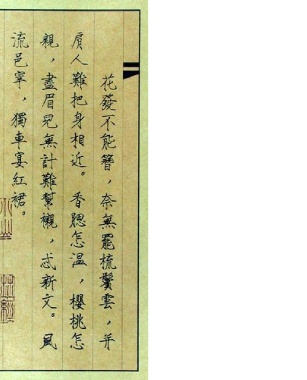 花發不能簪，奈無罷梳鬢雲，并
頂人難把身相近。香腮怎溫，櫻桃怎
親，畫眉兒無計難幫襯，忒新文。風
流邑宰，獨車宴紅裙。